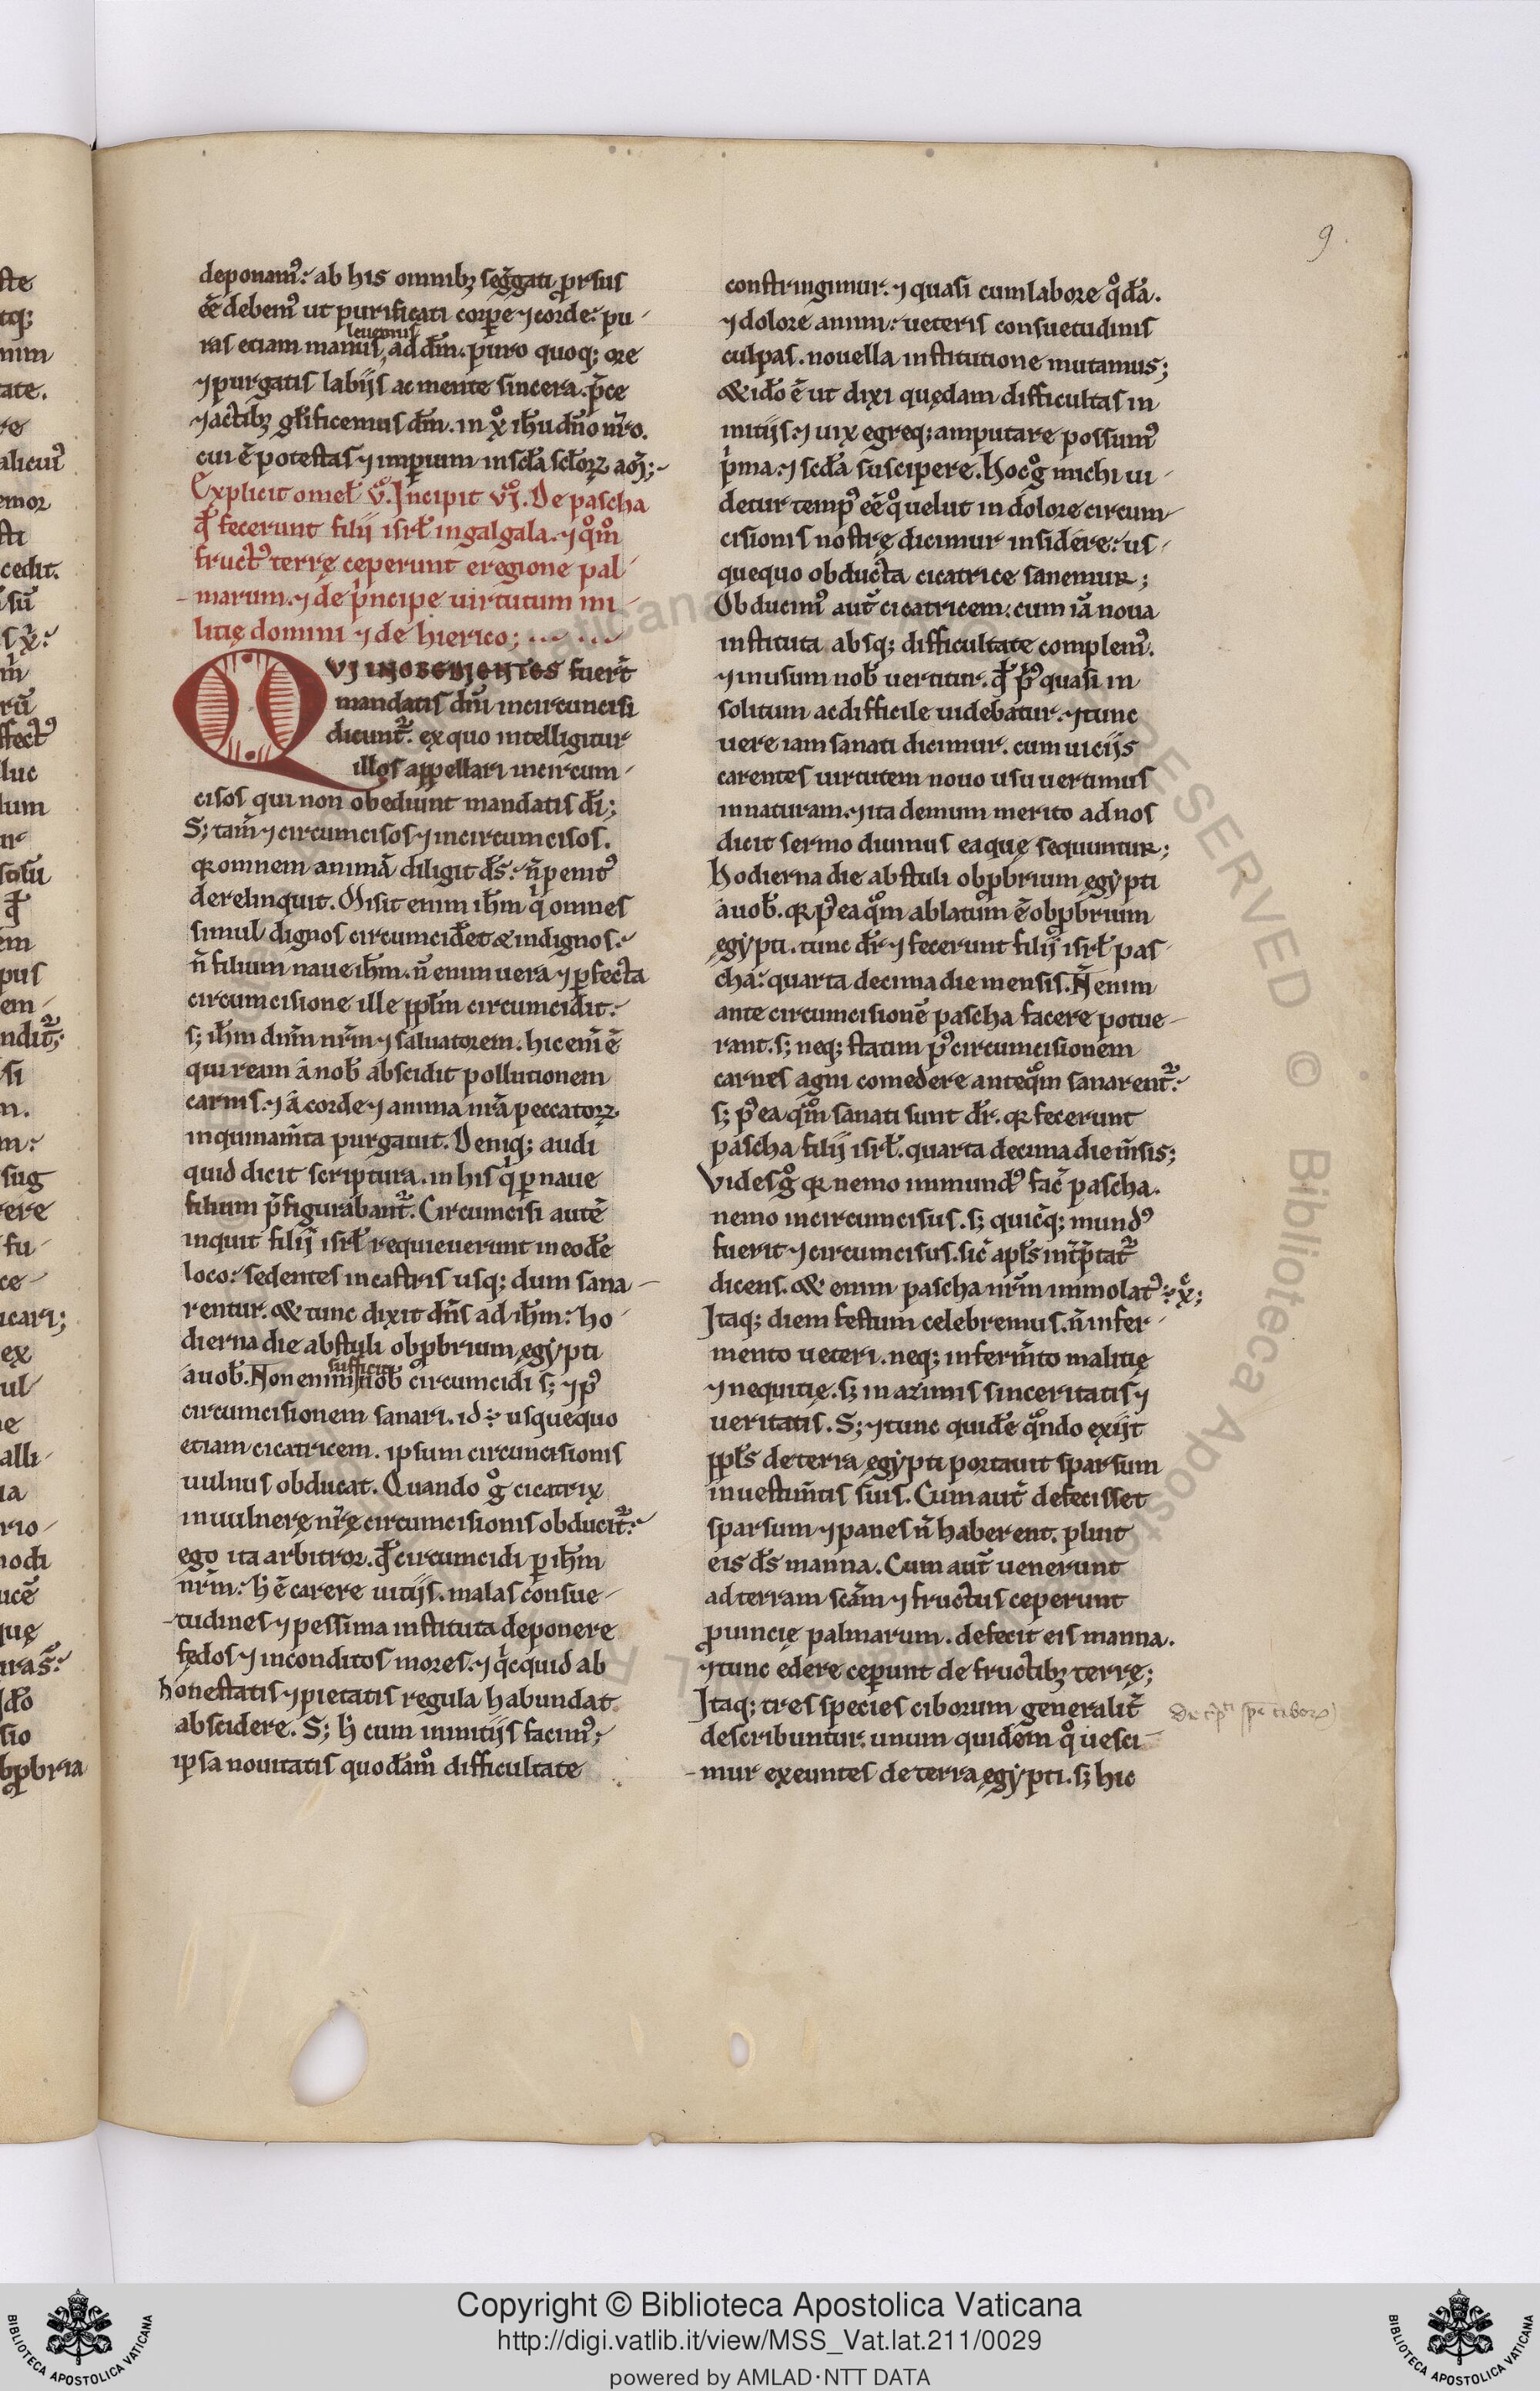 9.
deponam᷒: ab his omnibꝫ seg̃gati ꝓrsus
ee̅ debem᷒ ut purificati corꝑe ⁊ corde: pu-
leuemus
ras etiam manus, ad dm̅. puro quoq; ore
⁊ purgatis labijs ac mente sincera. p̃ce
⁊ actibꝫ gl̅ificemus dm̅. in xo̅ ih̅u dn̅o nr̅o.
cui e̅ potestas ⁊ imꝑium in scl̅a scl̅oꝝ am̅;~
Explicit omel̅ vͦ. Incipit vjͦ. De pascha
qd̅ fecerunt filij isrl̅ in galgala. ⁊ qͦm̊
fruct᷒ terrę ceperunt e regione pal-
marum. ⁊ de pͥncipe uirtutum mi-
litię domini ⁊ de hierico;
QVI INOBEDIENTES fuert̅
mandatis dn̅i incircuncisi
dicunt᷑. ex quo intelligitur
illos appellari incircum-
cisos qui non obediunt mandatis di̅;
S; tam̅ ⁊ circumcisos ⁊ incircumcisos.
qꝛ omnem anima̅ diligit ds̅: n̅ penit᷒
derelinquit. Misit enim ih̅m qͥ omnes
simul dignos circumcidet & indignos:
n̅ filium naue ih̅m. n̅ enim uera ⁊ ꝑfecta
circumcisione ille ppl̅m circumcidit:
s; ih̅m dnm̅ nr̅m ⁊ saluatorem. hic eni̅ e̅
qui ream a̅ nob̅ abscidit pollutionem
carnis. ⁊ a̅ corde ⁊ anima nr̅a peccatoꝝ
inquinam̅ta purgauit. Deniq; audi
quid dicit scriptura. in his qͥ ꝑ naue
filium p̃figurabant᷑. Circumcisi aute̅
inquit filij isrl̅ requieuerunt in eode̅
loco: sedentes in castris usq; dum sana-
rentur. & tunc dixit dn̅s ad ih̅m: ho-
dierna die abstuli obꝓbrium ęgypti
sufficit
a uob̅. Non enim nob̅ circumcidi s; ⁊ p᷒
circumcisionem sanari. id ÷ usquequo
etiam cicatricem. ipsum circuncisionis
uulnus obducat. Quando gͦ cicatrix
in uulnere nr̅ę circumcisionis obducit᷑:
ego ita arbitror. qd̅ circumcidi ꝑ ih̅m
nr̅m: h̅ e̅ carere uitijs. malas consue-
tudines ⁊ pessima instituta deponere
fędos ⁊ inconditos mores. ⁊ qͥcquid ab
honestatis ⁊ pietatis regula habundat
abscidere. S; h̅ cum initijs facim᷒;
ipsa nouitatis quoda̅mͦ difficultate
constringimur. ⁊ quasi cum labore qͦda̅.
⁊ dolore animi: ueteris consuetudinis
culpas. nouella institutione mutamus;
& ido̅ e̅ ut dixi quędam difficultas in
initijs. ⁊ uix egreq; amputare possum᷒
pͥma. ⁊ scd̅a suscipere. Hoc gͦ michi ui-
detur temp᷒ ee̅ qͦ uelut in dolore circum-
cisionis nostrę dicimur insidere: us-
quequo obducta cicatrice sanemur;
Obducim᷒ aut̅ cicatricem. cum ia̅ noua
instituta absq; difficultate complem᷒.
⁊ in usum nob̅ uertitur. qd̅ pͥ᷒ quasi in
solitum ac difficile uidebatur. ⁊ tunc
uere iam sanati dicimur. cum uicijs
carentes uirtutem nouo usu uertimus
in naturam. ⁊ ita demum merito ad nos
dicit sermo diuinus ea quę sequuntur;
Hodierna die abstuli obꝓbrium ęgypti
a uob̅. qꝛ p᷒ea qͦm ablatum e̅ obꝓbrium
ęgypti. tunc dr̅ ⁊ fecerunt filij isrl̅ pas-
cha: quarta decima die mensis. N̅ enim
ante circumcisione̅ pascha facere potue-
rant. s; neq; statim p᷒ circumcisionem
carnes agni comedere anteqͦm sanarent᷑:
s; p᷒ea qͦm sanati sunt dr̅. qꝛ fecerunt
pascha filij isrl̅. quarta decima die m̅sis;
Vides gͦ qꝛ nemo inmund᷒ fac̅ pascha.
nemo incircumcisus. s; quic̅q; mund᷒
fuerit ⁊ circumcisus. sic̅ apl̅s int̅p̃tat᷑
dicens. & enim pascha nr̅m immolat᷒ ÷ xc̅;
Itaq; diem festum celebremus. n̅ in fer-
mento ueteri. neq; in ferm̅to malitię
⁊ nequitię. s; in azimis sinceritatis ⁊
ueritatis. S; ⁊ tunc quide̅ qͦndo exijt
ppl̅s de terra ęgypti portauit sparsum
in uestim̅tis suis. Cum aut̅ defecisset
sparsum ⁊ panes n̅ haberent. pluit
eis ds̅ manna. Cum aut̅ uenerunt
ad terram sca̅m ⁊ fructus ceperunt
ꝓuincię palmarum. defecit eis manna.
⁊ tunc edere ceꝑunt de fructibꝫ terrę;
Itaq; tres species ciborum generalit̅
describuntur. unum quidem qͦ uesci-
mur exeuntes de terra ęgypti. s; hic
Copyright © Biblioteca Apostolica Vaticana
http://digi.vatlib.it/view/MSS_Vat.lat.211/0029
powered by AMLAD·NTT DATA
BIBLIOTECA APOSTOLICA VATICANA
BIBLIOTECA APOSTOLICA VATICANA